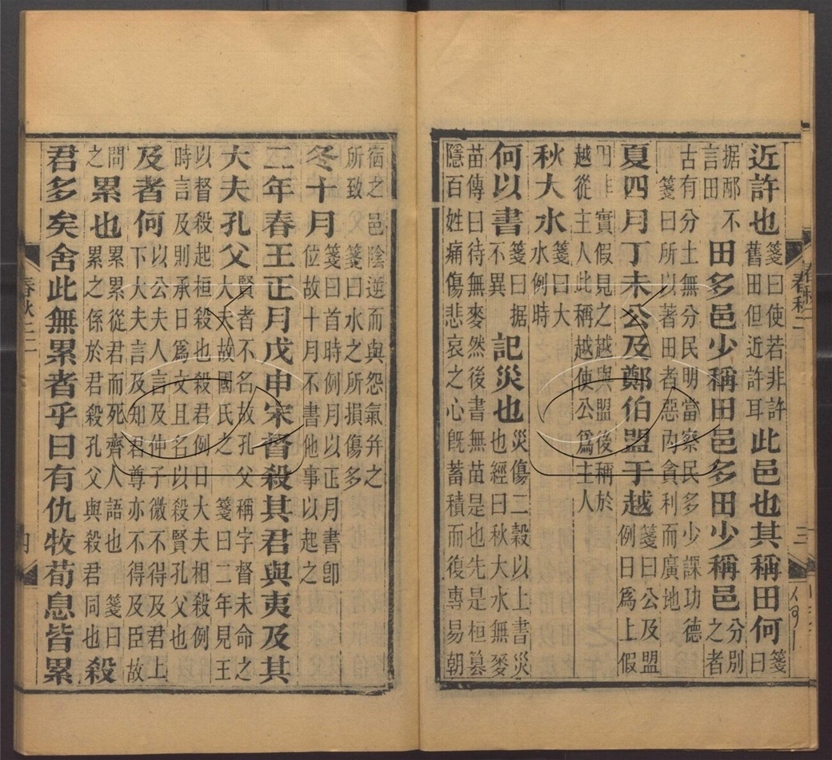 近許也箋曰使若非許舊田但近許耳此邑也其稱田何箋曰
据邴不言田田多邑少稱田邑多田少稱邑分別之者
古有分土無分民明當察民多少課功德
箋曰所以著田者惡內貪利而廣地
夏四月丁未公及鄭伯盟于越箋曰公及盟例日爲上假
非實假見之越與盟後稱於
越從主人此稱越使公爲主人
秋大水箋曰大水例時
何以書箋曰据不異記災也災傷二穀以上書災也經曰秋大水無麥
苗傳曰待無麥然後書無苗是也先是桓篡
隱百姓痛傷悲哀之心旣蓄積而復專易朝
宿之邑陰逆而與怨氣幷之
所致 箋曰水之所損傷多
冬十月箋曰首時例月以正月書卽位故十月不書他事以起之
二年春王正月戊申宋督殺其君與夷及其
大夫孔父賢者不名故孔父稱字督未命之大夫故國氏之 箋曰二年見王
以督殺起桓殺也殺君例日大夫相殺例
時言及則承日爲文且名以殺賢孔父也
及者何以公夫人言及仲子微不得及君上下大夫言及知君尊亦不得及臣故
問之累也累累從君而死齊人語也 箋曰累之係於君殺孔父與殺君同也殺
君多矣舍此無累者乎曰有仇牧荀息皆累
春秋二
四